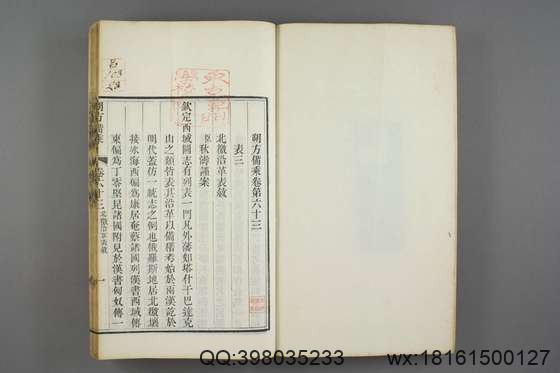 朔方備乘卷第六十三
表三
北徼沿革表敘
臣秋濤謹案
欽定西域圖志有列表一門凡外藩如塔什干巴達克
山之類皆表其沿革以備稽考始於兩漢訖於
明代蓋仿一統志之例也俄羅斯地居北徼壤
接水海西偏爲康居奄蔡諸國列漢書西域傳
東偏爲丁零堅昆諸國附見於漢書匈奴傳一
朔方備乘
卷六十三 北徼沿革表敘
一
QQ:398035233
wx:18161500127